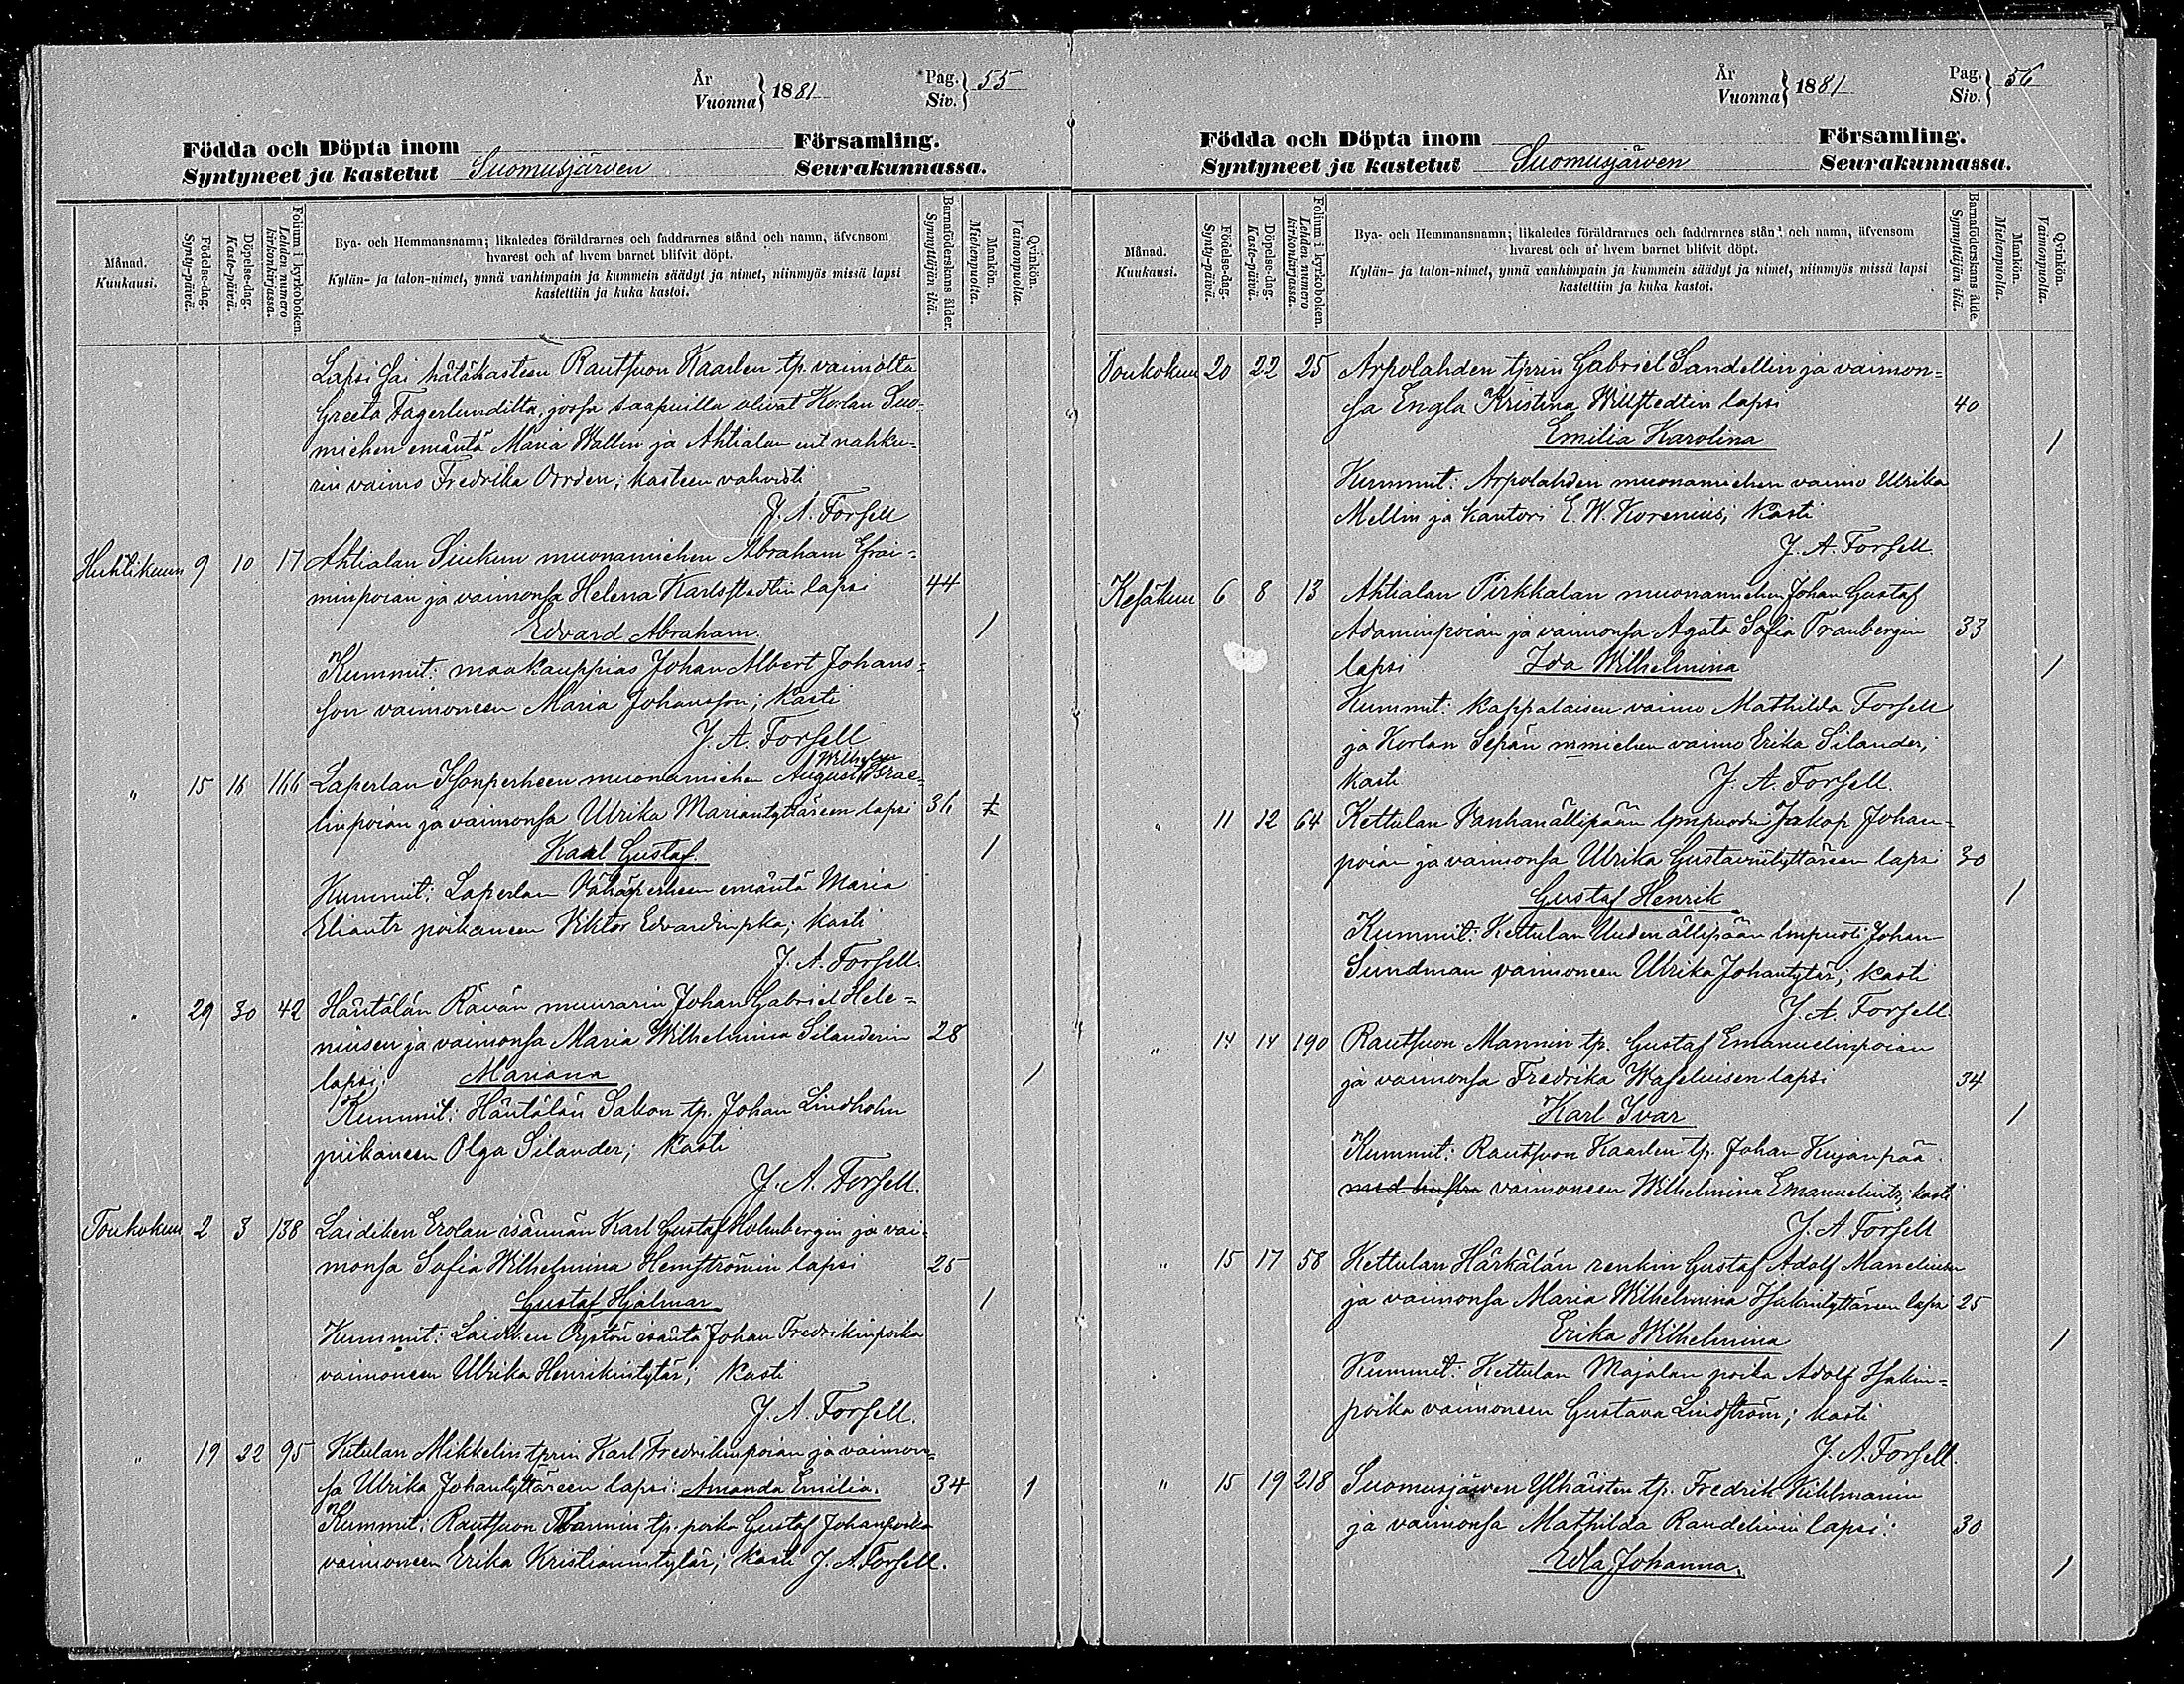 År
Vuonna } 1881
Pag.
Siv. } 55
Födda och Döpta inom Församling.
Syntyneet ja kastetut Suomusjärven Seurakunnassa.
Månad.
Kuukausi.
Födelse-dag.
Synty-päivä.
Döpelse-dag.
Kaste-päivä.
Folium i kyrkoboken.
Lehden numero kirkonkirjassa.
Bya- och Hemmansnamn; likaledes föräldrarnes och faddrarnes stånd och namn, äfvensom
hvarest och af hvem barnet blifvit döpt.
Kylän- ja talon-nimet, ynnä vanhimpain ja kummein säädyt ja nimet, niinmyös missä lapsi
kastettiin ja kuka kastoi.
Barnaföderskans ålder.
Synnyttäjän ikä.
Mankön.
Miehenpuolta.
Qvinkön.
Vaimonpuolta.
Lapsi sai hätäkasteen Rautsuon Kaarlen tp. vaimolta
Greeta Fagerlundilta, jossa saapuilla olivat Korlan Suo-
miehen emäntä Maria Wallin ja Ahtialan nahku-
rin vaimo Fredrika Orrden; kasteen vahvisti
J. A. Forsell
Huhtikuun 9 10 17 Ahtialan Siukun muonamiehen Abraham Efrai-
minpoian ja vaimonsa Helena Karlstedtin lapsi 44
Edvard Abraham. 1
Kummit: maakauppias Johan Albert Johans-
son vaimoneen Maria Johansson; kasti
J. A. Forsell
Wilhelm
" 15 16 166 Laperlan Isonperheen muonamiehen August Israe-
linpoian ja vaimonsa Ulrika Mariantyttäreen lapsi 36 1
Kaal Gustaf. 1
Kummit: Laperlan Vähäperheen emäntä Maria
Eliantr poikaneen Viktor Edvardinpka; kasti
J. A. Forsell.
" 29 30 42 Häntälän Rävän muurarin Johan Gabriel Hele-
niusen ja vaimonsa Maria Wilhelmina Silanderin 28
lapsi: Mariana 1
Kummit: Häntälän Sakon tp. Johan Lindholm
piikaneen Olga Silander; kasti
J. A. Forsell.
Toukokuu 2 3 138 Laidiken Erolan isännän Karl Gustaf Holmbergin ja vai-
monsa Sofia Wilhelmina Hemströmin lapsi 25
Gustaf Hjalmar 1
Kummit: Laidiken isäntä Johan Fredrikinpoika
vaimoneen Ulrika Henrikintytär; kasti
J. A. Forsell.
" 19 22 95 Kitulan Mikkelin tprin Karl Fredrikinpoian ja vaimon-
sa Ulrika Johantyttäreen lapsi: Amanda Emilia. 34 1
Kummit: Rautsuon Mannin tp. poika Gustaf Johanpoika
vaimoneen Erika Kristianintytär; kasti J. A. Forsell.
År
Vuonna } 1881
Pag.
Siv. } 56
Födda och Döpta inom Församling.
Syntyneet ja kastetut Suomusjärven Seurakunnassa.
Månad.
Kuukausi.
Födelse-dag.
Synty-päivä.
Döpelse-dag.
Kaste-päivä.
Folium i kyrkoboken.
Lehden numero kirkonkirjassa.
Bya- och Hemmansnamn; likaledes föräldrarnes och faddrarnes stån och namn, äfvensom
hvarest och af hvem barnet blifvit döpt.
Kylän- ja talon-nimet, ynnä vanhimpain ja kummein säädyt ja nimet, niinmyös missä lapsi
kastettiin ja kuka kastoi.
Barnaföderskans ålde
Synnyttäjän ikä.
Mankön.
Miehenpuolta.
Qvinkön.
Vaimonpuolta.
Toukokuu 20 22 25 Arpolahden tprin Gabriel Sandellin ja vaimon-
sa Engla Kristina Willstedtin lapsi 40
Emilia Karolina 1
Kummit: Arpolahden muonamiehen vaimo Ulrika
Mellin ja kanttori E. W. Korenius; kasti
J. A. Forsell.
Kesäkuu 6 8 13 Ahtialan Pirkkalan muonamiehen Johan Gustaf
Adaminpoian ja vaimonsa Agata Sofia Tranbergin 33
lapsi Ida Wilhelmina 1
Kummit: kappalaisen vaimo Mathilda Forsell
ja Korlan Sepän mmiehen vaimo Erika Silander;
kasti J. A. Forsell.
" 11 12 64 Kettulan Vanhanällipään Jakop Johan-
poian ja vaimonsa Ulrika Gustavintyttäreen lapsi 30
Gustaf Henrik 1
Kummit: Kettulan Uudenällipään Johan
Sundman vaimoneen Ulrika Johantytär; kasti
J. A. Forsell.
" 14 14 190 Rautsuon Mannin tp. Gustaf Emanuelinpoian
ja vaimonsa Fredrika Waseliusen lapsi 34
Karl Ivar 1
Kummit: Rautsuon Kaarlen tp. Johan Kujanpää
med hustru vaimoneen Wilhelmina Emanuelintr; kasti
J. A. Forsell
" 15 17 58 Kettulan Härkälän renkin Gustaf Adolf Maneliusen
ja vaimonsa Maria Wilhelmina Isakintyttäreen lapsi 25
Erika Wilhelmina 1
Kummit: Kettulan Majalan poika Adolf Isakin-
poika vaimoneen Gustava Lindström; kasti
J. A. Forsell.
" 15 19 218 Suomusjärven Ylhäisten tp. Fredrik Kihlmanin
ja vaimonsa Mathilda Randelinin lapsi: 30
Edla Johanna. 1